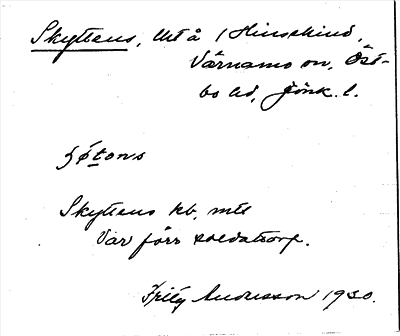 Skyttens, Ut å / Hinsekind,
Värnamo sn, Öst-
bo hd, Jönk. l.
Skyttens kb, mtl
Var förr soldattorp.
Fritz Andersson 1930.